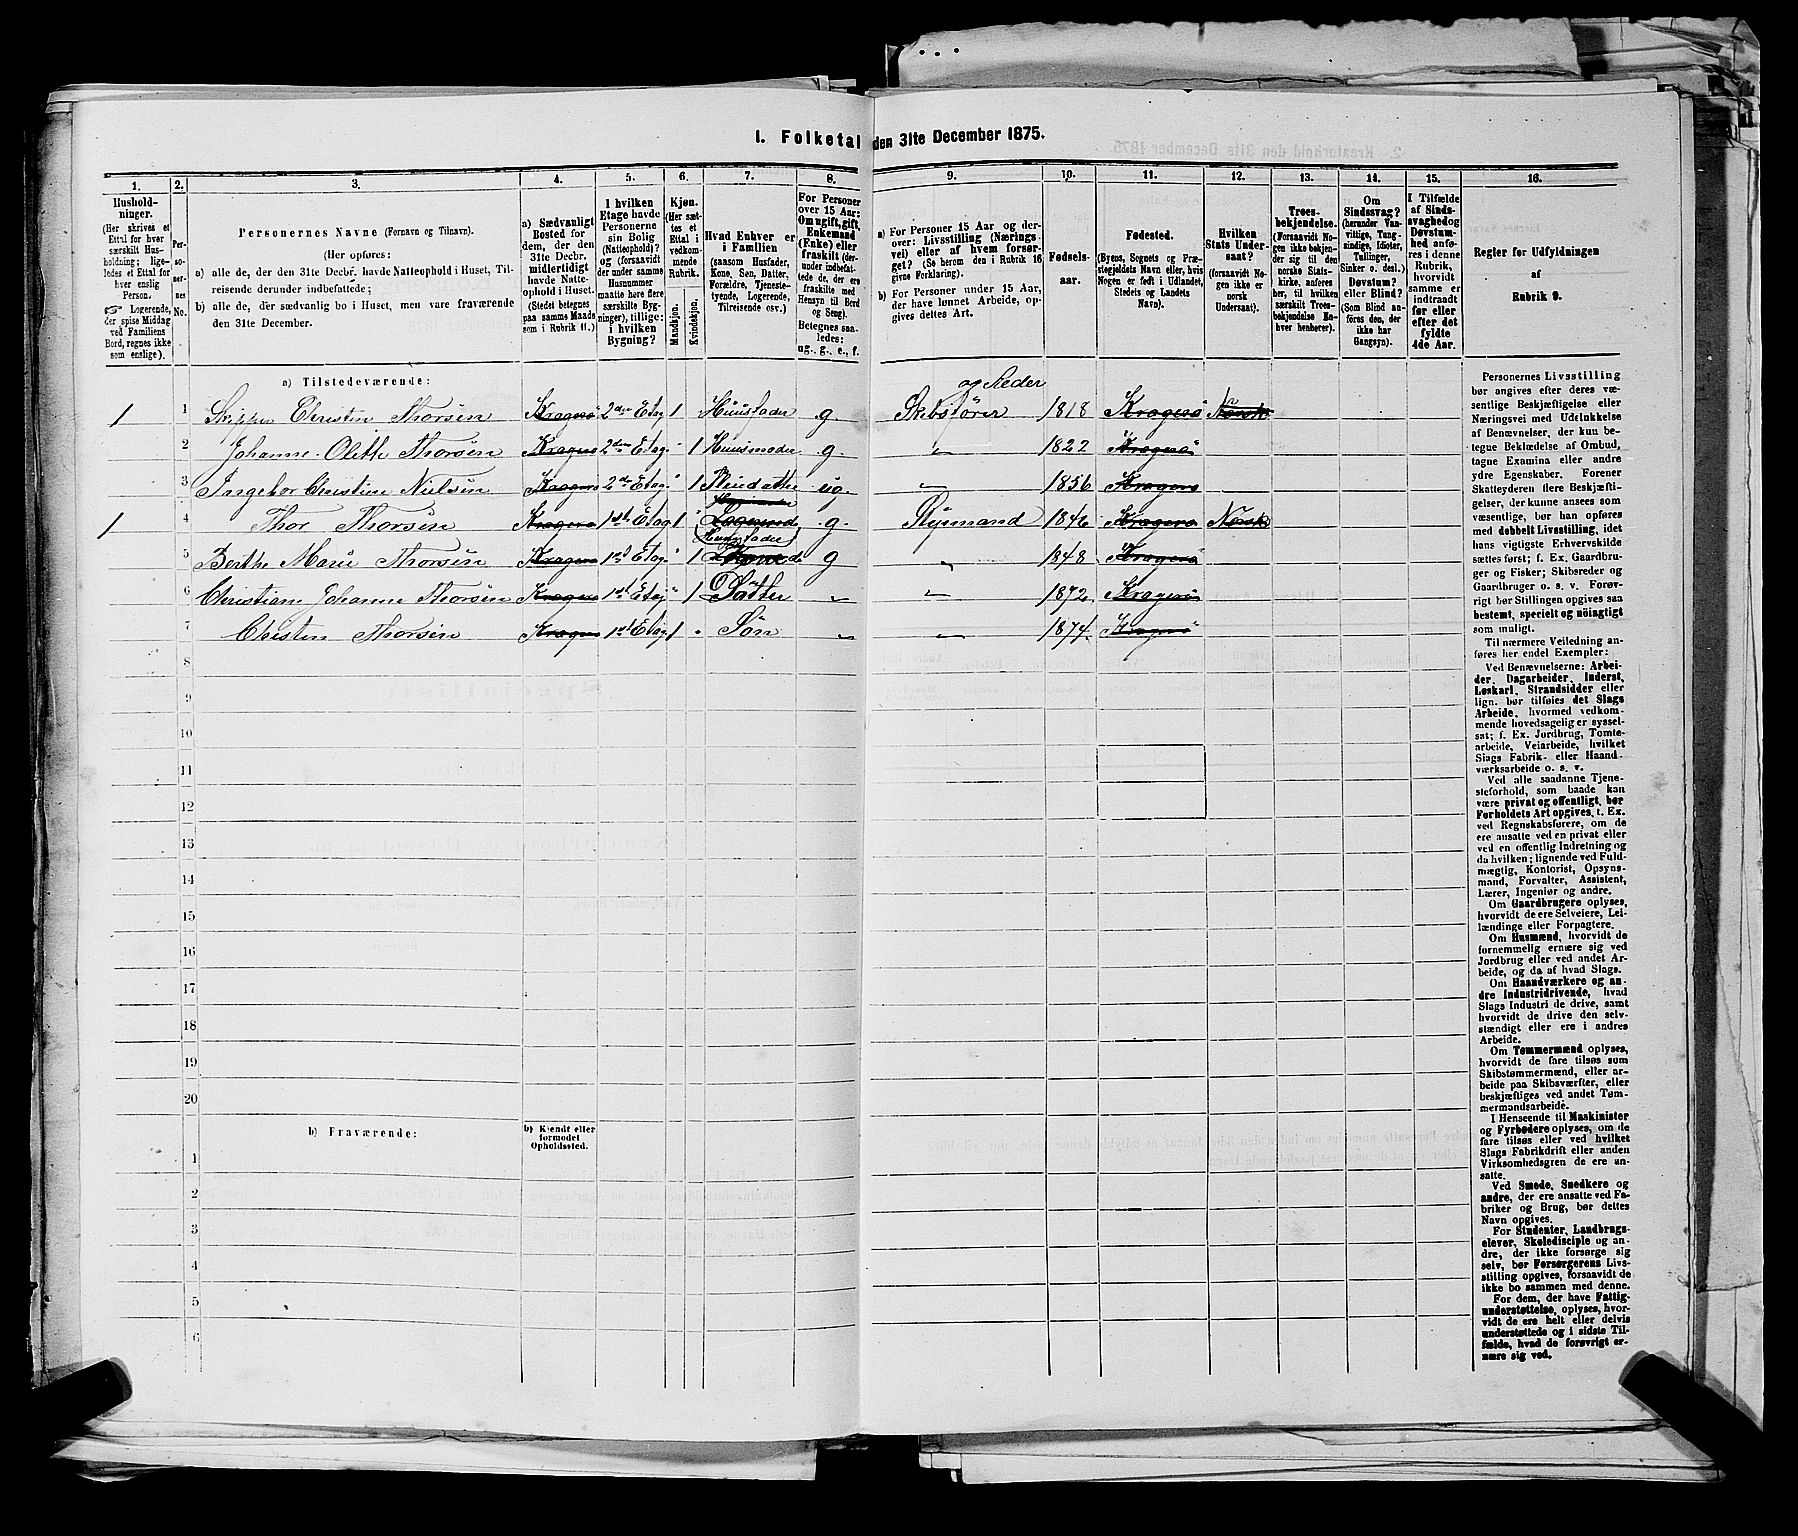 1. Folketal den 31te December 1875.
1. 2. 3. 4. 5. 6. 7. 8. 9. 10. 11. 12. 13. 14. 15. 16.
Husholdninger. (Her skrives et Ettal for hver særskilt Husholdning; ligeledes et Ettal for hver enslig Person. Logerende, der spise Middag ved Familiens Bord, regnes ikke som enslige).
Personernes No.
Personernes Navne (Fornavn og Tilnavn).
(Her opføres:
a) alle de, der den 31te Decbr. havde Natteophold i Huset, Tilreisende derunder indbefattede;
b) alle de, der sædvanlig bo i Huset, men vare fraværende den 31te December.
a) Sædvanligt Bosted for dem, der den 31te Decbr. midlertidigt havde Natteophold i Huset. (Stedet betegnes paa samme Maade som i Rubrik 11.)
I hvilken Etage havde Personerne sin Bolig (Natteophold)? og (forsaavidt der under samme Husnummer maatte høre flere særskilte Bygninger), tillige: i hvilken Bygning?
Kjøn. (Her sættes et Ettal i vedkommende Rubrik. Mandkjøn. Kvindekjøn.
Hvad Enhver er i Familien (saasom Husfader, Kone, Søn, Datter, Forældre, Tjenestetyende, Logerende, Tilreisende osv.)
For Personer over 15 Aar: Om ugift, gift, Enkemand (Enke) eller fraskilt (derunder indbefattede de, der ere fraskilte med Hensyn til Bord og Seng). Betegnes saaledes: ug., g., e., f.
a) For Personer 15 Aar og derover: Livsstilling (Næringsvei) eller af hvem forsørget? (Se herom den i Rubrik 16 givne Forklaring).
b) For Personer under 15 Aar, der have lønnet Arbeide, opgives dettes Art.
Fødselsaar.
Fødested. (Byens, Sognets og Præstegjeldets Navn eller, hvis Nogen er født i Udlandet, Stedets og Landets Navn).
Hvilken Stats Undersaat? (forsaavidt Nogen ikke er norsk Undersaat).
Troesbekjendelse. (Forsaavidt Nogen ikke bekjender sig til den norske Statskirke, anføres her, til hvilken særskilt Troesbekjendelse Enhver henhører).
Om Sindssvag? (herunder Vanvittige, Tungsindige, Idioter, Tullinger, Sinker o. desl.) Døvstum? eller Blind? (Som Blind anføres den, der ikke har Gangsyn).
I Tilfælde af Sindssvaghed og Døvstumhed anføres i denne Rubrik, hvorvidt samme er indtraadt før eller efter det fyldte 4de Aar.
Regler for Udfyldningen af Rubrik 9.
a) Tilstedeværende:
og Reder
1 1 Skipper Christen Thorsen Kragerø 2den Etag 1 Huusfader g Skibsfører 1818 Kragerø Norsk
2 Johanne Olette Thorsen Kragerø 2den Etag " 1 Huusmoder g. " 1822 Kragerø
3 Ingebor Christine Nielsen Kragerø 2den Etag " 1 Pleiedatter ug. " 1856 Kragerø
1 4 Thor Thorsen Kragerø 1st Etag 1 " Logerende Huusfader g. Styrmand 1846 Kragerø Norsk
5 Berthe Marie Thorsen Kragerø 1st Etag " 1 Kone g " 1848 Kragerø
6 Christiane Johanne Thorsen Kragerø 1st Etag " 1 Datter " " 1872 Kragerø
7 Christen Thorsen Kragerø 1st Etag 1 " Søn " " 1874. Kragerø
8
9
10
11
12
13
14
15
16
17
18
19
20
b) Fraværende:
b) Kjendt eller formodet Opholdssted.
1
2
3
4
5
6
Personernes Livsstilling
bør angives efter deres væ-
sentlige Beskjæftigelse eller
Næringsvei med Udelukkelse
af Benævnelser, der kun be-
tegne Beklædelse af Ombud,
tagne Examina eller andre
ydre Egenskaber. Forener
Skatteyderen flere Beskjæfti-
gelser, der kunne ansees som
væsentlige, bør han opføres
med dobbelt Livsstilling, idet
hans vigtigste Erhvervskilde
sættes først; f. Ex. Gaardbru-
ger og Fisker; Skibsreder og
Gaardbruger o. s. v. Forøv-
rigt bør Stillingen opgives saa
bestemt, specielt og nöiagtigt
som muligt.
Til nærmere Veiledning an-
føres her endel Exempler:
Ved Benævnelserne: Arbei-
der, Dagarbeider, Inderst,
Løskarl, Strandsidder eller
lign. bør tilføies det Slags
Arbeide, hvormed vedkom-
mende hovedsagelig er syssel-
sat; f. Ex. Jordbrug, Tomte-
arbeide, Veiarbeide, hvilket
Slags Fabrik- eller Haand-
værksarbeide o. s. v.
Ved alle saadanne Tjene-
steforhold, som baade kan
være privat og offentligt, bør
Forholdets Art opgives, t. Ex.
ved Regnskabsførere, om de
ere ansatte ved en privat eller
ved en offentlig Indretning og
da hvilken; lignende ved Fuld-
mægtig, Kontorist, Opsyns-
mand, Forvalter, Assistent,
Lærer, Ingeniør og andre.
Om Gaardbrugere oplyses,
hvorvidt de ere Selveiere, Lei-
lændinge eller Forpagtere.
Om Husmænd, hvorvidt de
fornemmelig ernære sig ved
Jordbrug eller ved andet Ar-
beide, og da af hvad Slags.
Om Haandværkere og an-
dre Industridrivende, hvad
Slags Industri de drive, samt
hvorvidt de drive den selv-
stændigt eller ere i andres
Arbeide.
Om Tømmermænd oplyses,
hvorvidt de fare tilsøs som
Skibstømmermænd, eller ar-
beide paa Skibsværfter, eller
beskjæftiges ved andet Tøm-
mermandsarbeide.
I Henseende til Maskinister
og Fyrbødere oplyses, om de
fare tilsøs eller ved hvilket
Slags Fabrikdrift eller anden
Virksomhedsgren de ere an-
satte.
Ved Smede, Snedkere og
andre, der ere ansatte ved Fa-
briker og Brug, bør dettes
Navn opgives.
For Studenter, Landbrugs-
elever, Skoledisciple og an-
dre, der ikke forsørge sig
selv, bør Forsørgerens Livs-
stilling opgives, forsaavidt de
ikke bo sammen med denne.
For dem, der have Fattig-
understøttelse, oplyses, hvor-
vidt de ere helt eller delvis
understøttede og i sidste Til-
fælde, hvad de forøvrigt er-
nære sig ved.